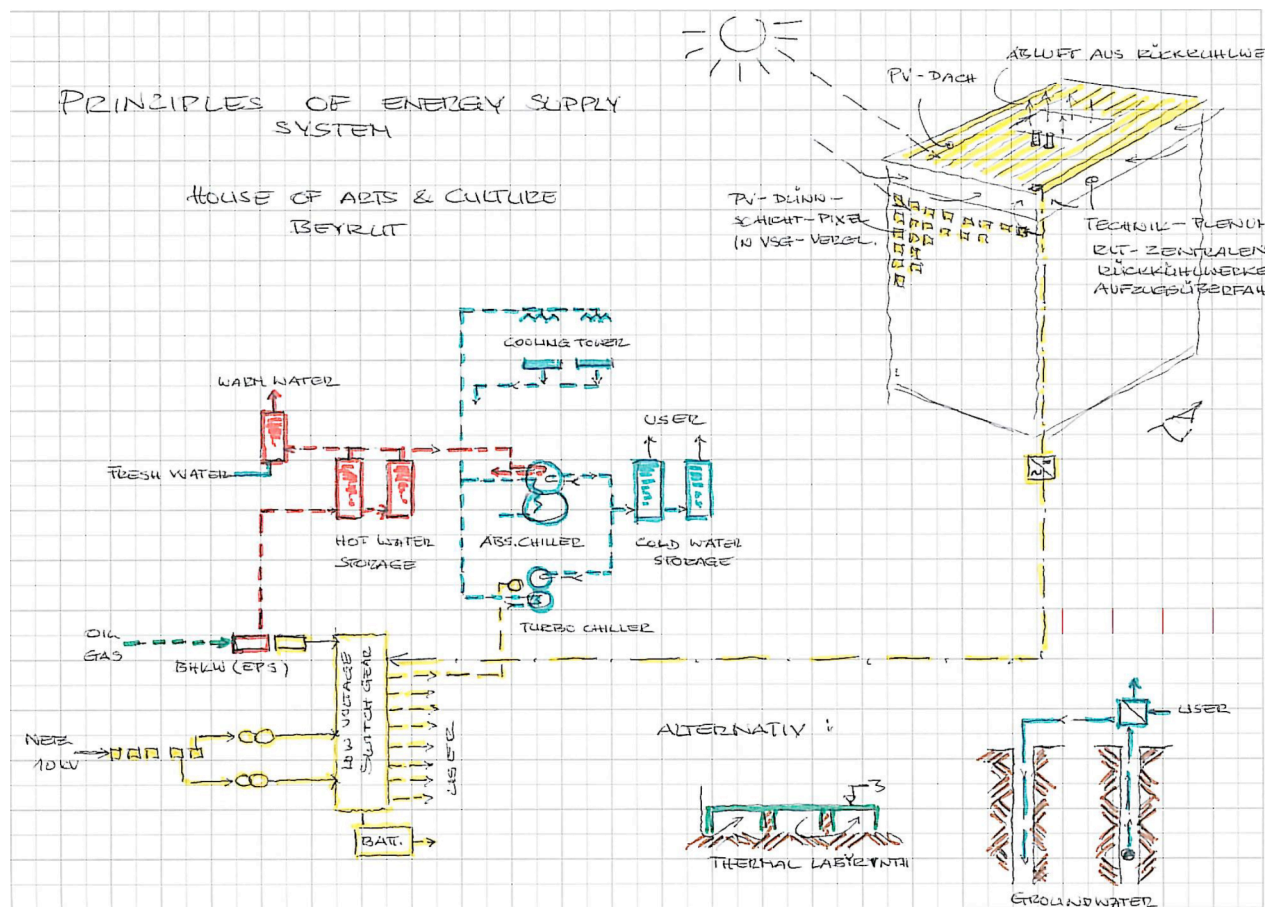 PRINCIPLES OF ENERGY SUPPLY
SYSTEM
HOUSE OF ARTS & CULTURE
BEYRUT
ABLUFT AUS RÜCKKÜHLWE
PV-DACH
PV-DÜNN-
SCHICHT-PIXEL
IN VSG-VERGL.
TECHNIK-PLENUM
RLT-ZENTRALEN
RÜCKKÜHLWERKE
AUFZUGSÜBERFAH
COOLING TOWER
WARM WATER
FRESH WATER
USER
HOT WATER
STORAGE
ABS. CHILLER
COLD WATER
STORAGE
TURBO CHILLER
OIL
GAS
BHKW (EPS)
LOW VOLTAGE
SWITCH GEAR
USER
NETZ
10 KV
BATT.
ALTERNATIV :
3
THERMAL LABYRYNTH
USER
GROUNDWATER